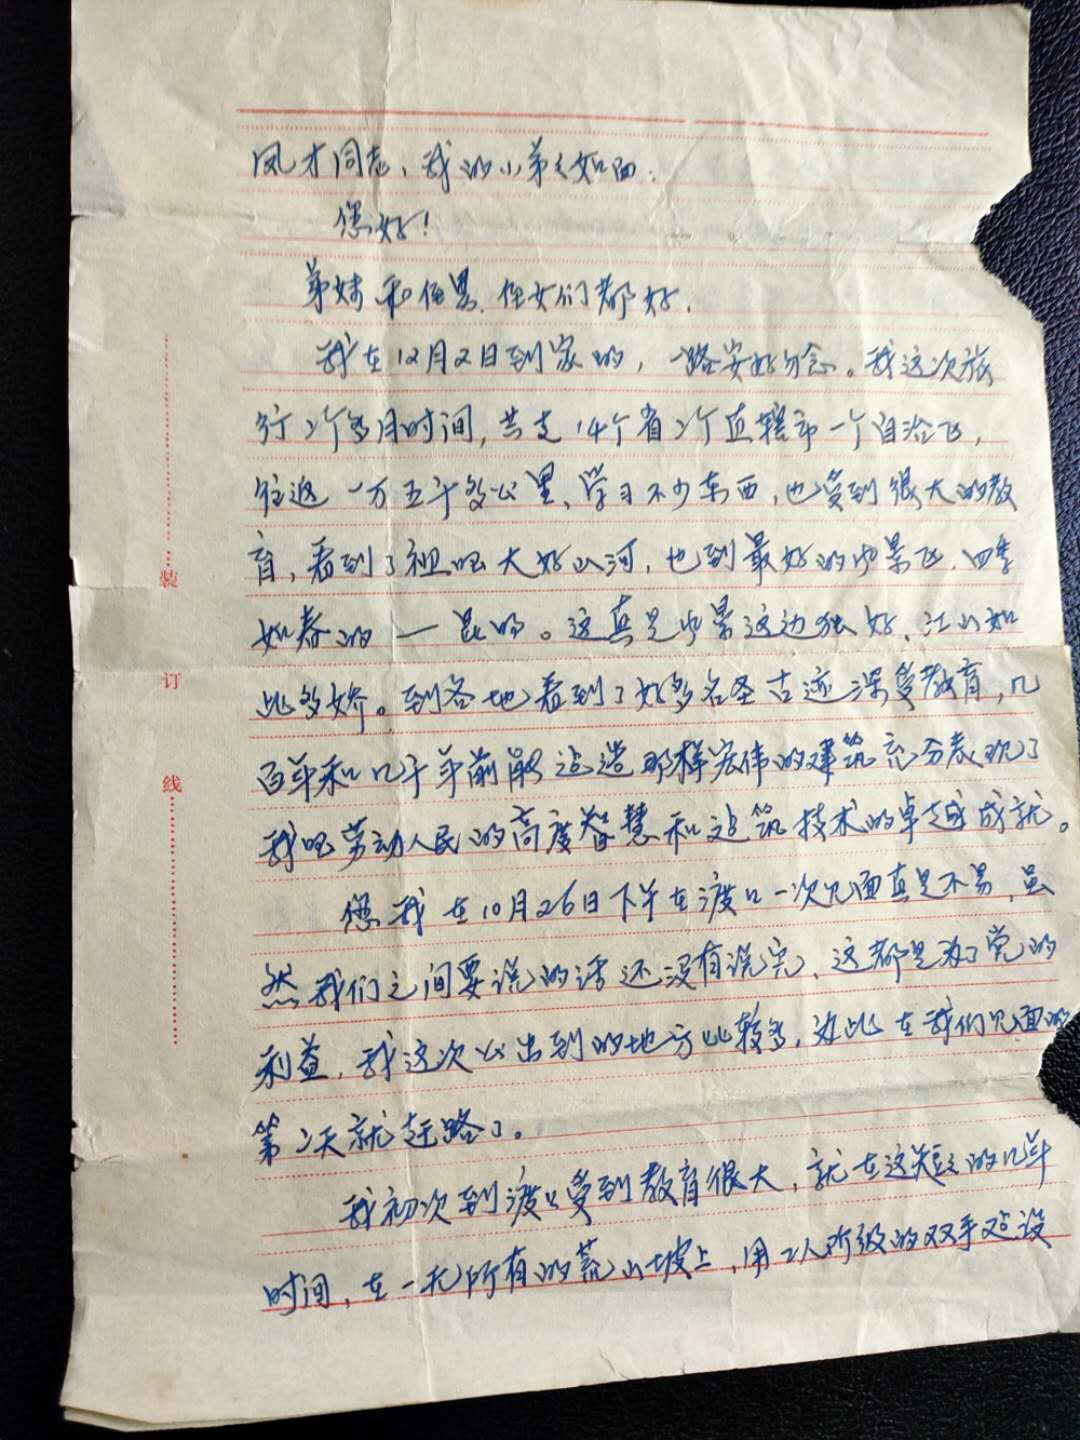 凤才同志、我的小弟弟如面:
您好!
弟妹和伯男、侄女们都好.
我在12月2日到家的,一路安好勿念。我这次旅
行2个多月时间,共走14个省2个直辖市一个自治区,
往返一万五千多公里、学习不少东西,也受到很大的教
育,看到了祖国大好山河,也到最好的风景区.四季
如春的—昆明。这真是风景这边独好、江山如
此多娇。到各地看到了好多名圣古迹深受教育,几
百年和几千年前能造那样宏伟的建筑充分表现了
我国劳动人民的高度智慧和建筑技术的卓越成就。
您我在10月26日下午在渡口一次见面真是不易,虽
然我们之间要说的话还没有说完、这都是为了党的
利益,我这次公出到的地方比较多,为此在我们见面的
第2天就赶路了。
我初次到渡口受到教育很大,就在这短短的几年
时间,在一无所有的荒山坡上,用工人阶级的双手建设
装
订
线